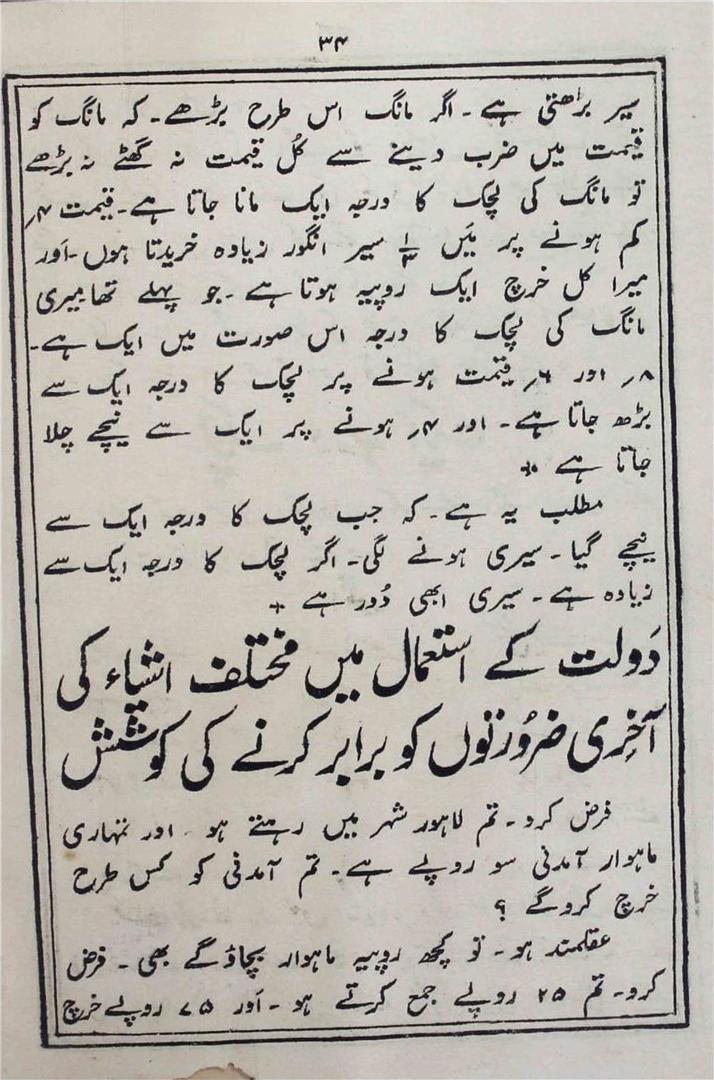 ۳۴
سیر بڑھتی ہے۔ اگر مانگ اس طرح بڑھے۔ کہ مانگ کو
قیمت میں ضرب دینے سے کُل قیمت نہ گھٹے نہ بڑھے
تو مانگ کی لچک کا درجہ ایک مانا جاتا ہے۔ قیمت ۴؍
کم ہونے پر مَیں ⅓ سیر انگور زیادہ خریدتا ہوں۔ اَور
میرا کل خرچ ایک روپیہ ہوتا ہے۔ جو پہلے تھا میری
مانگ کی لچک کا درجہ اس صورت میں ایک ہے۔
۸؍ اور ۶؍ قیمت ہونے پر لچک کا درجہ ایک سے
بڑھ جاتا ہے۔ اور ۴؍ ہونے پر ایک سے نیچے چلا
جاتا ہے +
مطلب یہ ہے۔ کہ جب لچک کا درجہ ایک سے
نیچے گیا۔ سیری ہونے لگی۔ اگر لچک کا درجہ ایک سے
زیادہ ہے۔ سیری ابھی دُور ہے +
دَولت کے استعمال میں مختلف اشیاء کی
آخِری ضرُورتوں کو برابر کرنے کی کوشش
فرض کرو۔ تم لاہور شہر میں رہتے ہو۔ اور تمہاری
ماہوار آمدنی سو روپے ہے۔ تم آمدنی کو کس طرح
خرچ کروگے ؟
عقلمند ہو۔ تو کچھ روپیہ ماہوار بچاؤگے بھی۔ فرض
کرو۔ تم ۲۵ روپے جمع کرتے ہو۔ اَور ۷۵ روپے خرچ